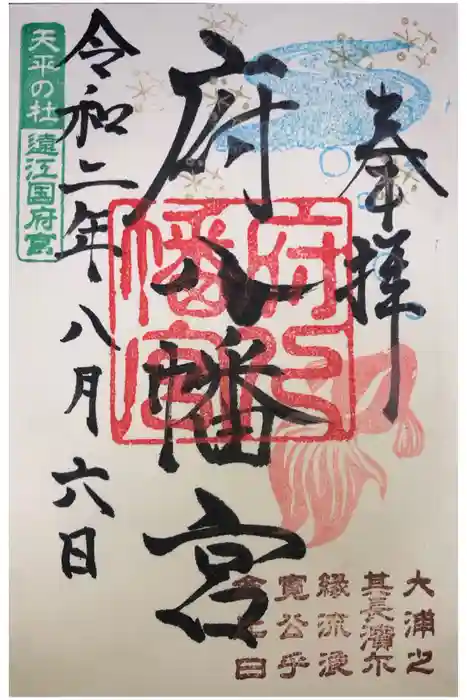 奉拝
府八幡宮
府八
幡宮
令和二年八月六日
天平の杜 遠江国府宮
大浦之
其長濱尓
縁流浪
寛公乎
念比日